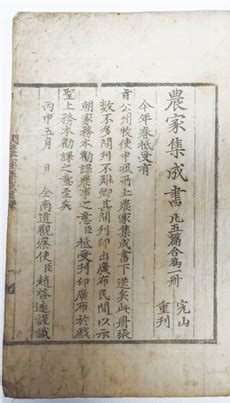 農家集成書 凡五篇合爲一冊 完山重刊
今年春祗受有
旨公州牧使申洬所上農家集成書下送矣此冊張
數不多開刊不難卿其開刊印出廣布民間以示
朝家務本勸課農事之意臣祗受刊印廣布於戱
聖上務本勸課之意至矣
丙申五月 日 全南道觀察使臣趙啓遠謹識